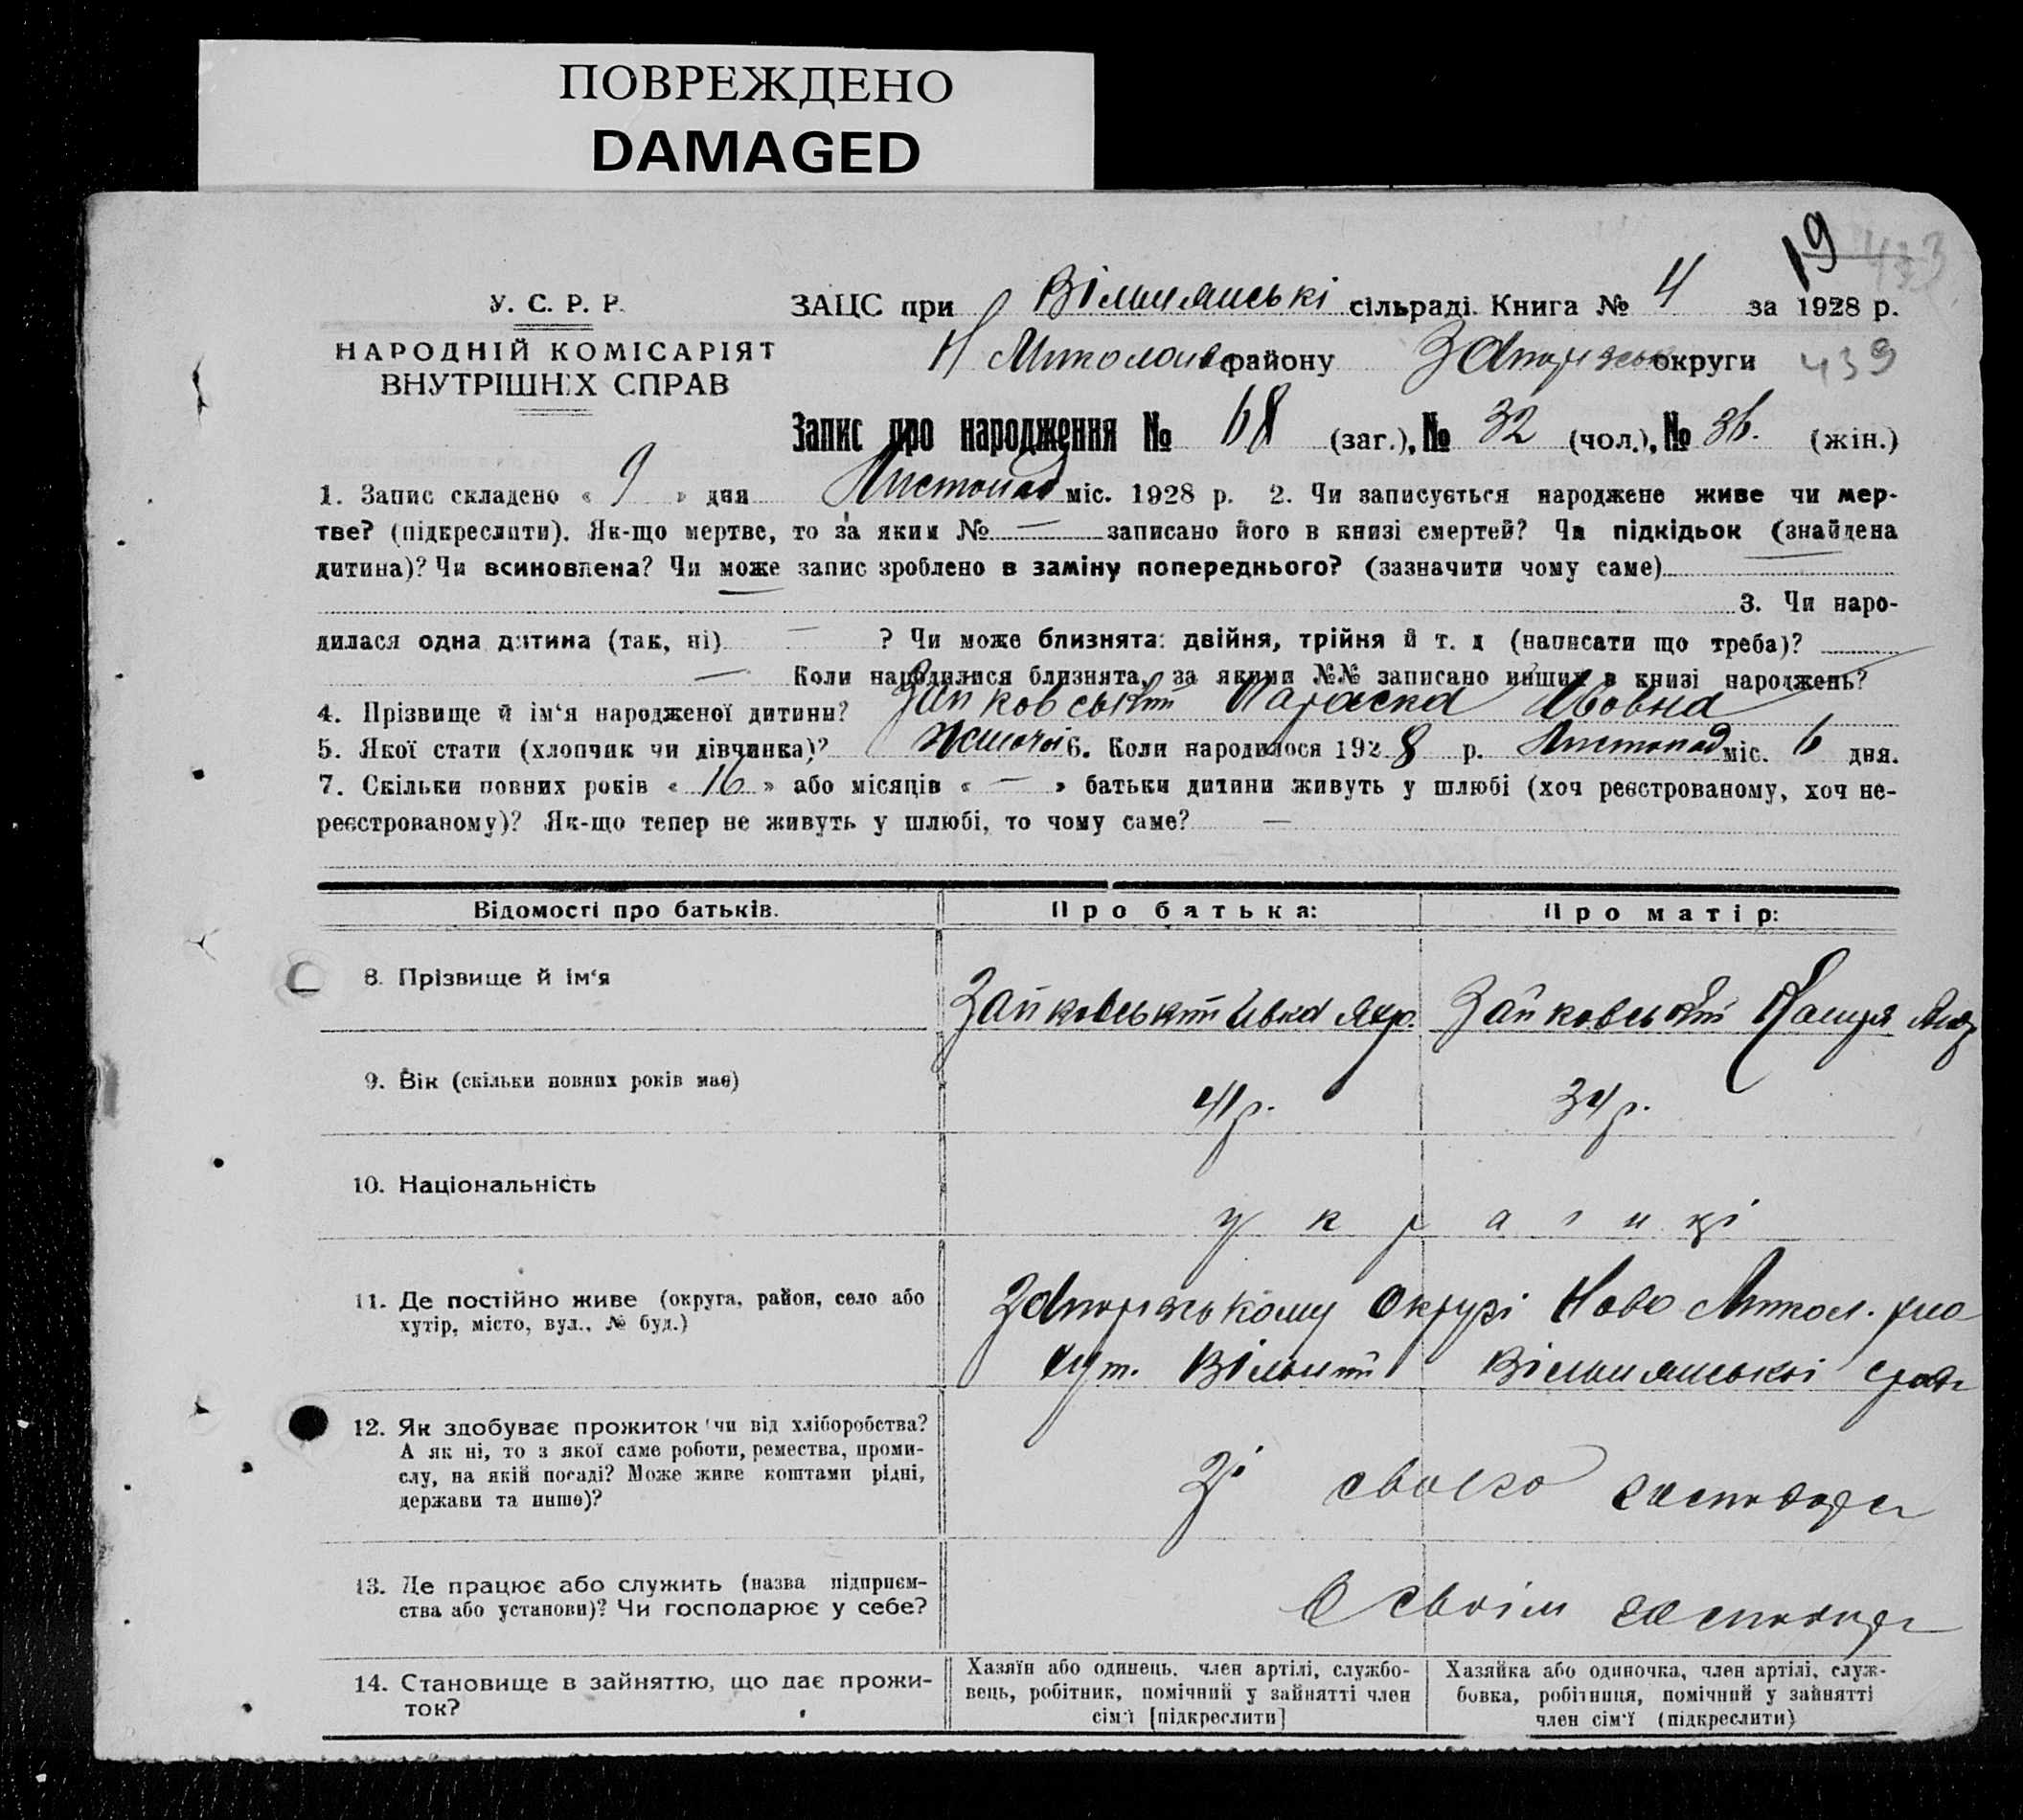 ПОВРЕЖДЕНО
DAMAGED
19
439
У. С. Р. Р.
НАРОДНІЙ КОМІСАРІЯТ
ВНУТРІШНІХ СПРАВ
ЗАЦС при Вільнянські сільраді. Книга № 4 за 1928 р.
Н Миколаїв району Запорізьк округи
Запис про народження № 68 (заг.), № 32 (чол.), № 36. (жін.)
1. Запис складено « 9 » дня Листопад міс. 1928 р. 2. Чи записується народжене живе чи мер-
тве? (підкреслити). Як-що мертве, то за яким № — записано його в книзі смертей? Чи підкідьок (знайдена
дитина)? Чи всиновлена? Чи може запис зроблено в заміну попереднього? (зазначити чому саме)
3. Чи наро-
дилася одна дитина (так, ні) — ? Чи може близнята: двійня, трійня й т. д (написати що треба)?
— Коли народилися близнята, за якими №№ записано инших в книзі народжень?
4. Прізвище й ім‘я народженої дитини? Зайковський Параска Івовна
5. Якої стати (хлопчик чи дівчинка)? жіночоі 6. Коли народилося 1928 р. Листопад міс. 6 дня.
7. Скільки повних років « 16 » або місяців « — » батьки дитини живуть у шлюбі (хоч реєстрованому, хоч не-
реєстрованому)? Як-що тепер не живуть у шлюбі, то чому саме? —
Відомості про батьків. Про батька: Про матір:
8. Прізвище й ім‘я
Зайковський Івка Зайковський
9. Вік (скільки повних років має)
41 р. 34 р.
10. Національність
українці
11. Де постійно живе (округа, район, село або
хутір, місто, вул., № буд.)
Запорізькому Окрузі Ново Микол. р-на
хут. Вільний Вільнянськоі
12. Як здобуває прожиток чи від хліборобства?
А як ні, то з якої саме роботи, ремества, проми-
слу, на якій посаді? Може живе коштами рідні,
держави та инше)?
Зі свого господар
13. Де працює або служить (назва підприєм-
ства або установи)? Чи господарює у себе?
В своїм господар
14. Становище в зайняттю, що дає прожи-
ток?
Хазяїн або одинець, член артілі, службо-
вець, робітник, помічний у зайнятті член
сім‘ї [підкреслити]
Хазяйка або одиночка, член артілі, служ-
бовка, робітниця, помічний у зайнятті
член сім‘ї (підкреслити)